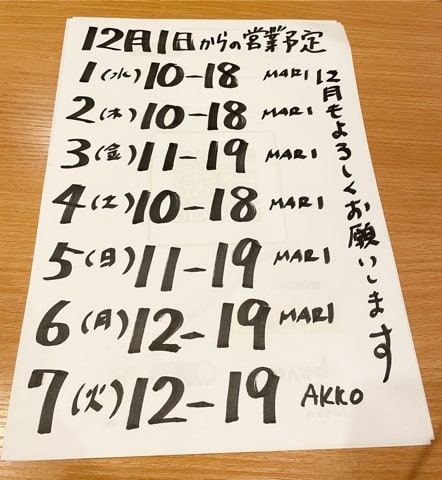 12月1日からの営業予定
1(水)10-18 MARI
2(木)10-18 MARI
3(金)11-19 MARI
4(土)10-18 MARI
5(日)11-19 MARI
6(月)12-19 MARI
7(火)12-19 AKKO
12月もよろしくお願いします